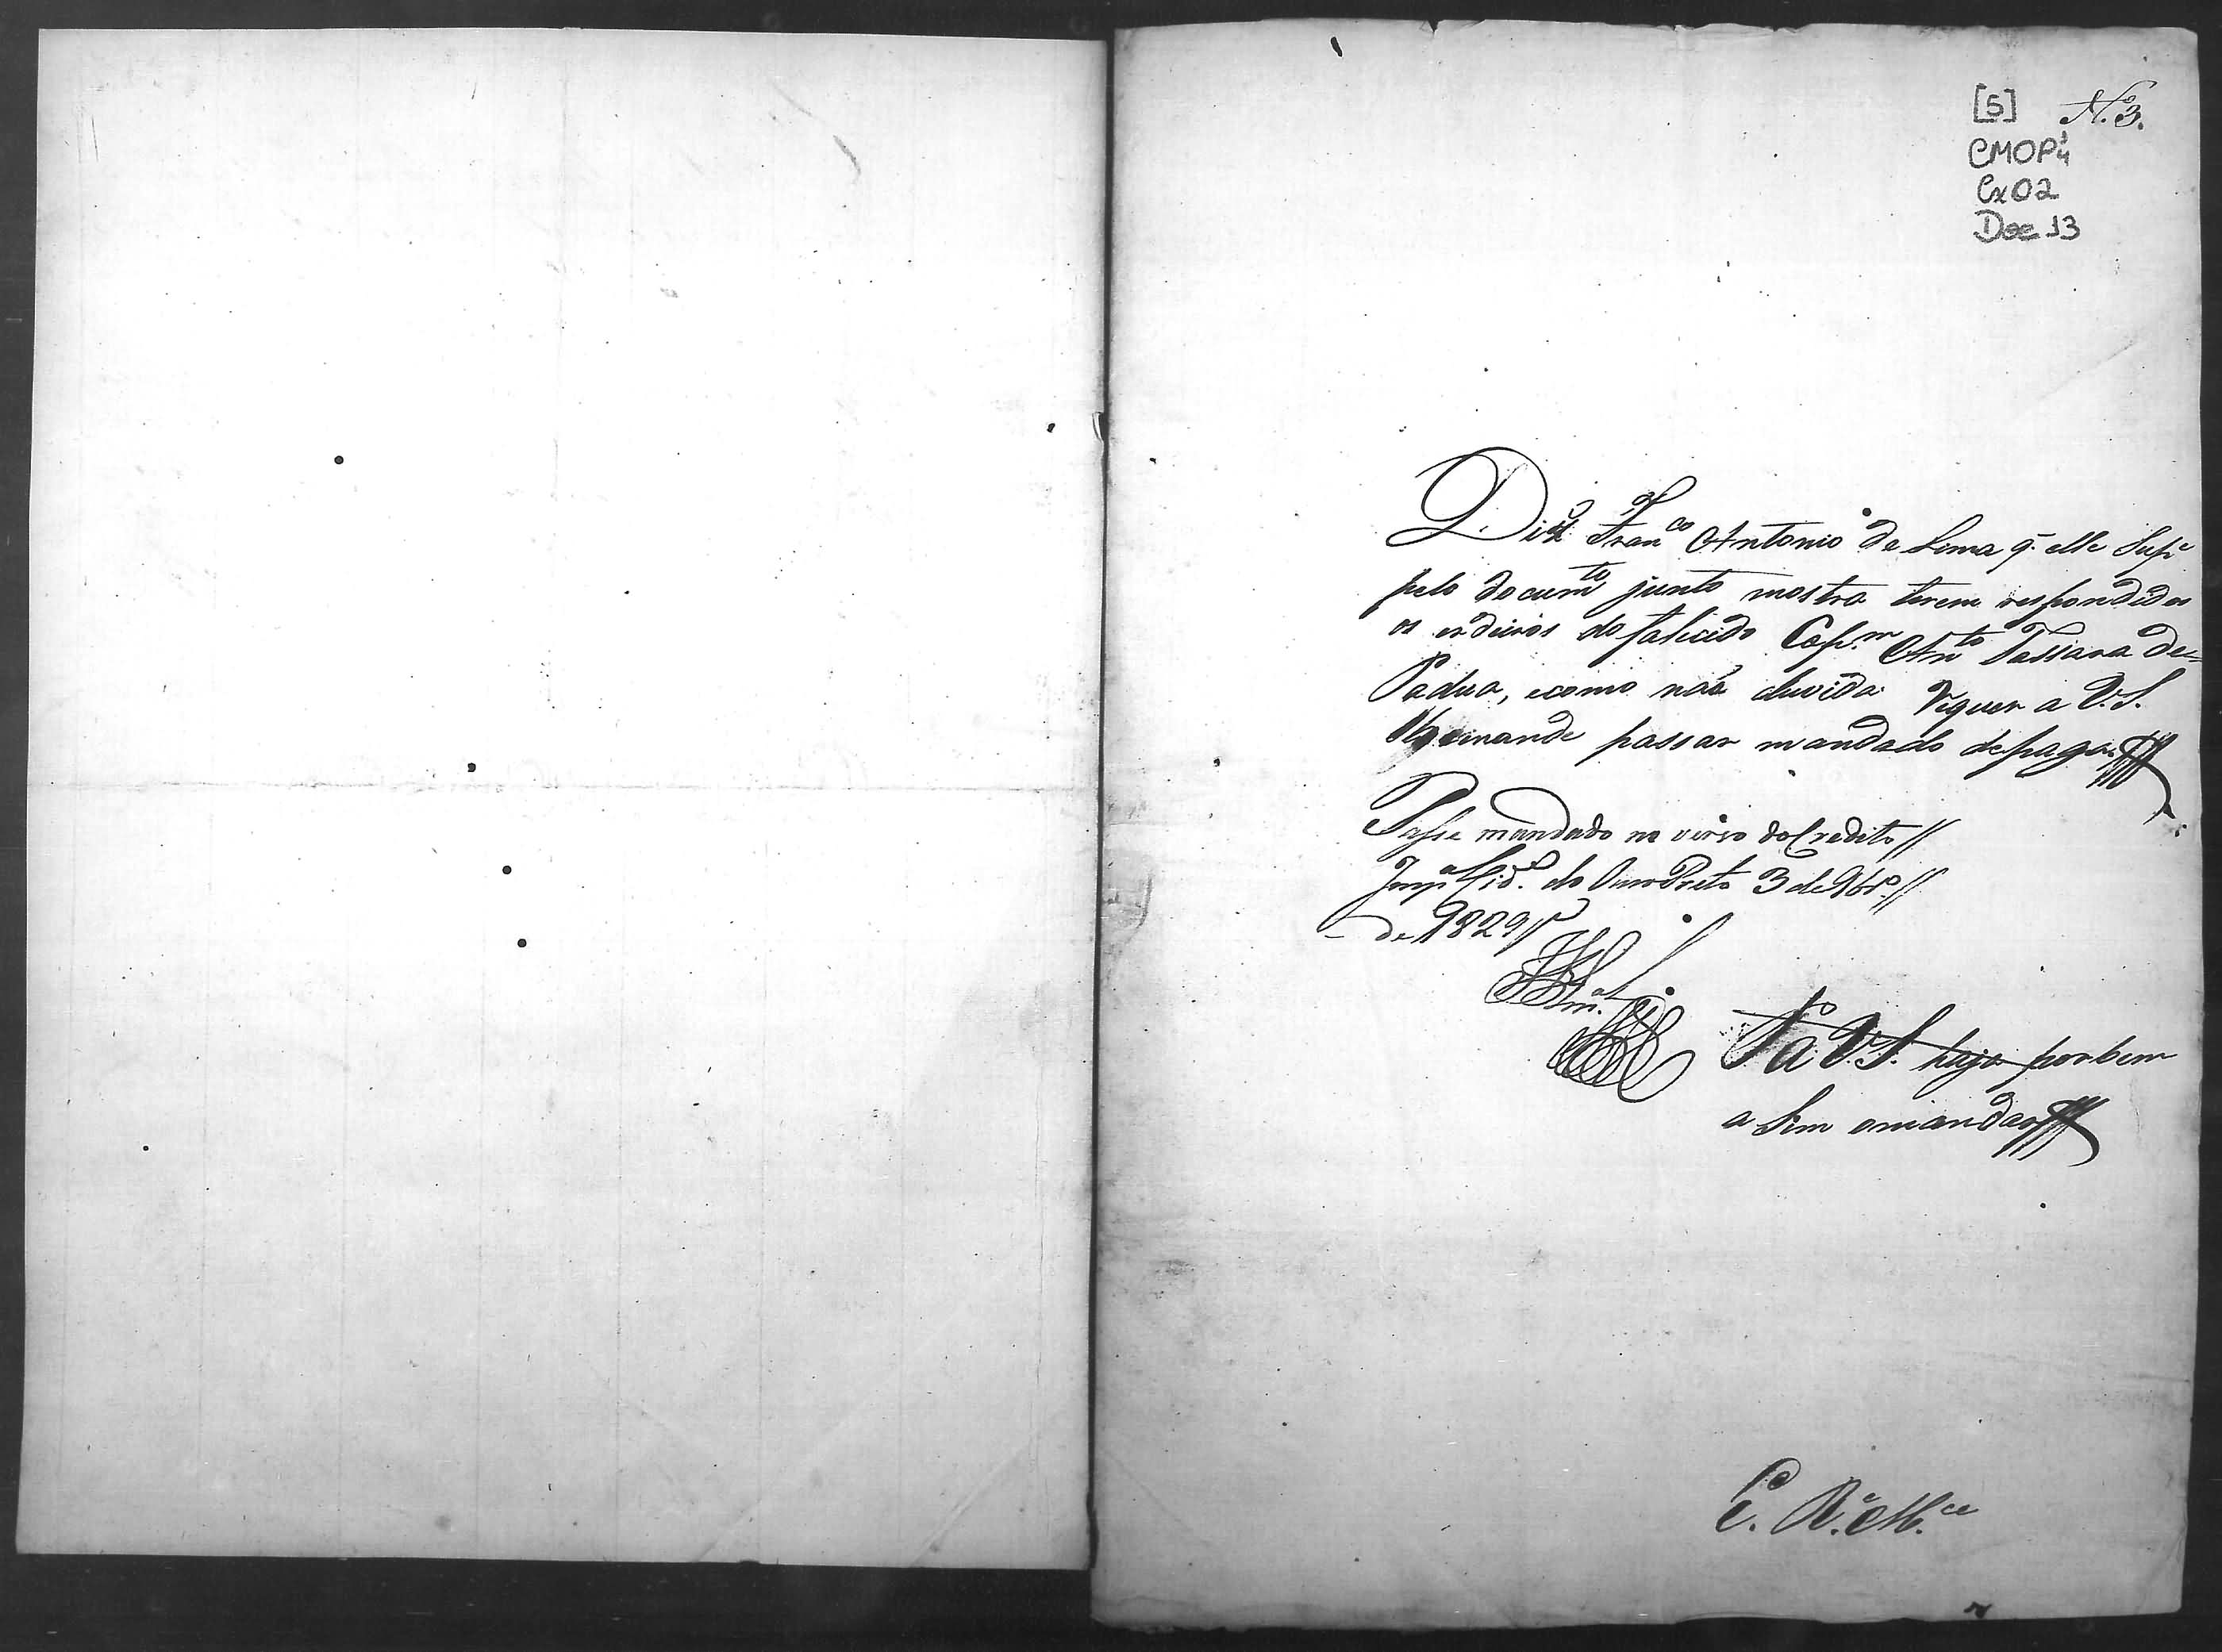 [5] N.º 3.
CMOP 1/4
Cx02
Doc 13
Diz Fran.co Antonio de Lima q. elle Sup.e
pelo docum.to junto mostra terem respondido
os erdeiros do falecido Cap.m Ant.o Tassara de
Padua, ecomo naõ duvida Requer a V.S.
mande passar mandado depagar
Passe mandado no verso do Credito //
Imp.al Cid.e do Ouro Preto 3 de 9br.o //
de 1829 //
P.a V.S. haja porbem
a Sim omandar
E. R. M.ce